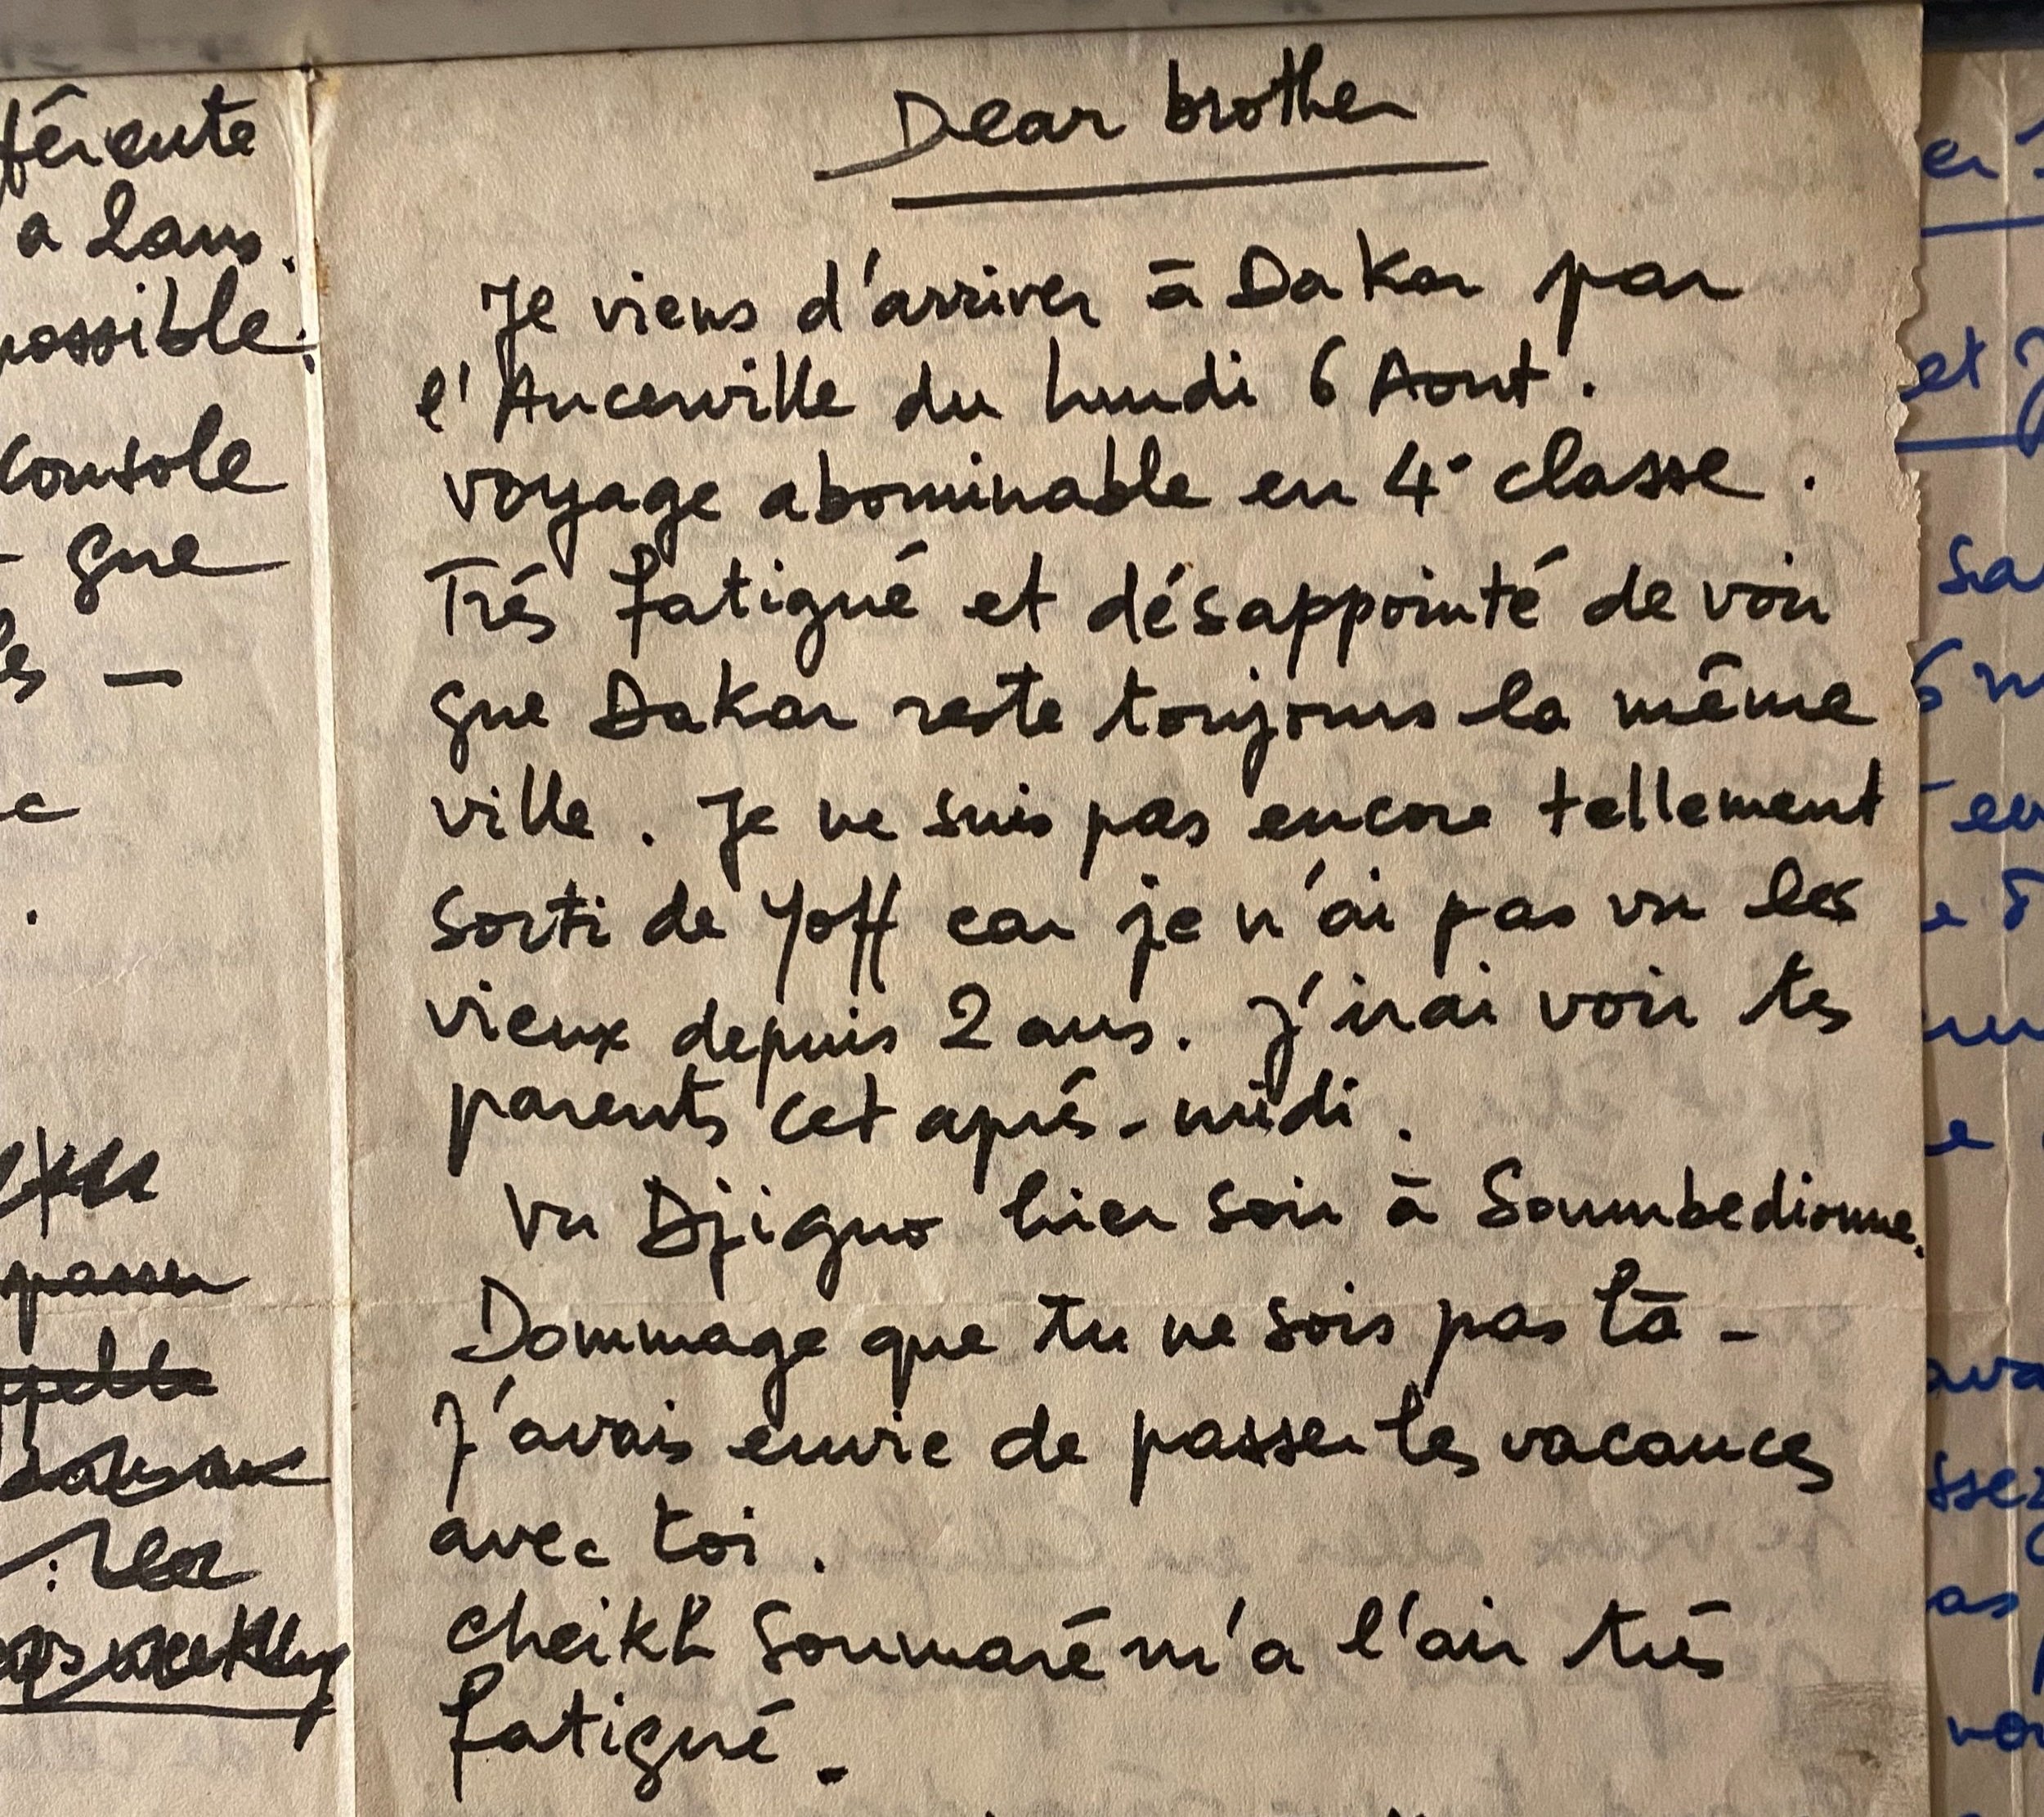 férente
a 2 ans.
possible.
console
- que
les -
Dear brother
Je viens d'arriver à Dakar par
l'Ancerville du lundi 6 Aout.
voyage abominable en 4° classe.
Trés fatigué et désappointé de voir
que Dakar reste toujours la même
ville. Je ne suis pas encore tellement
sorti de Yoff car je n'ai pas vu les
vieux depuis 2 ans. J'irai voir tes
parents cet aprés-midi.
Vu Djiguo hier soir à Soumbedioune.
Dommage que tu ne sois pas là -
J'avais envie de passer les vacances
avec toi.
cheikh Soumaré m'a l'air trés
fatigué -
er
et
sa